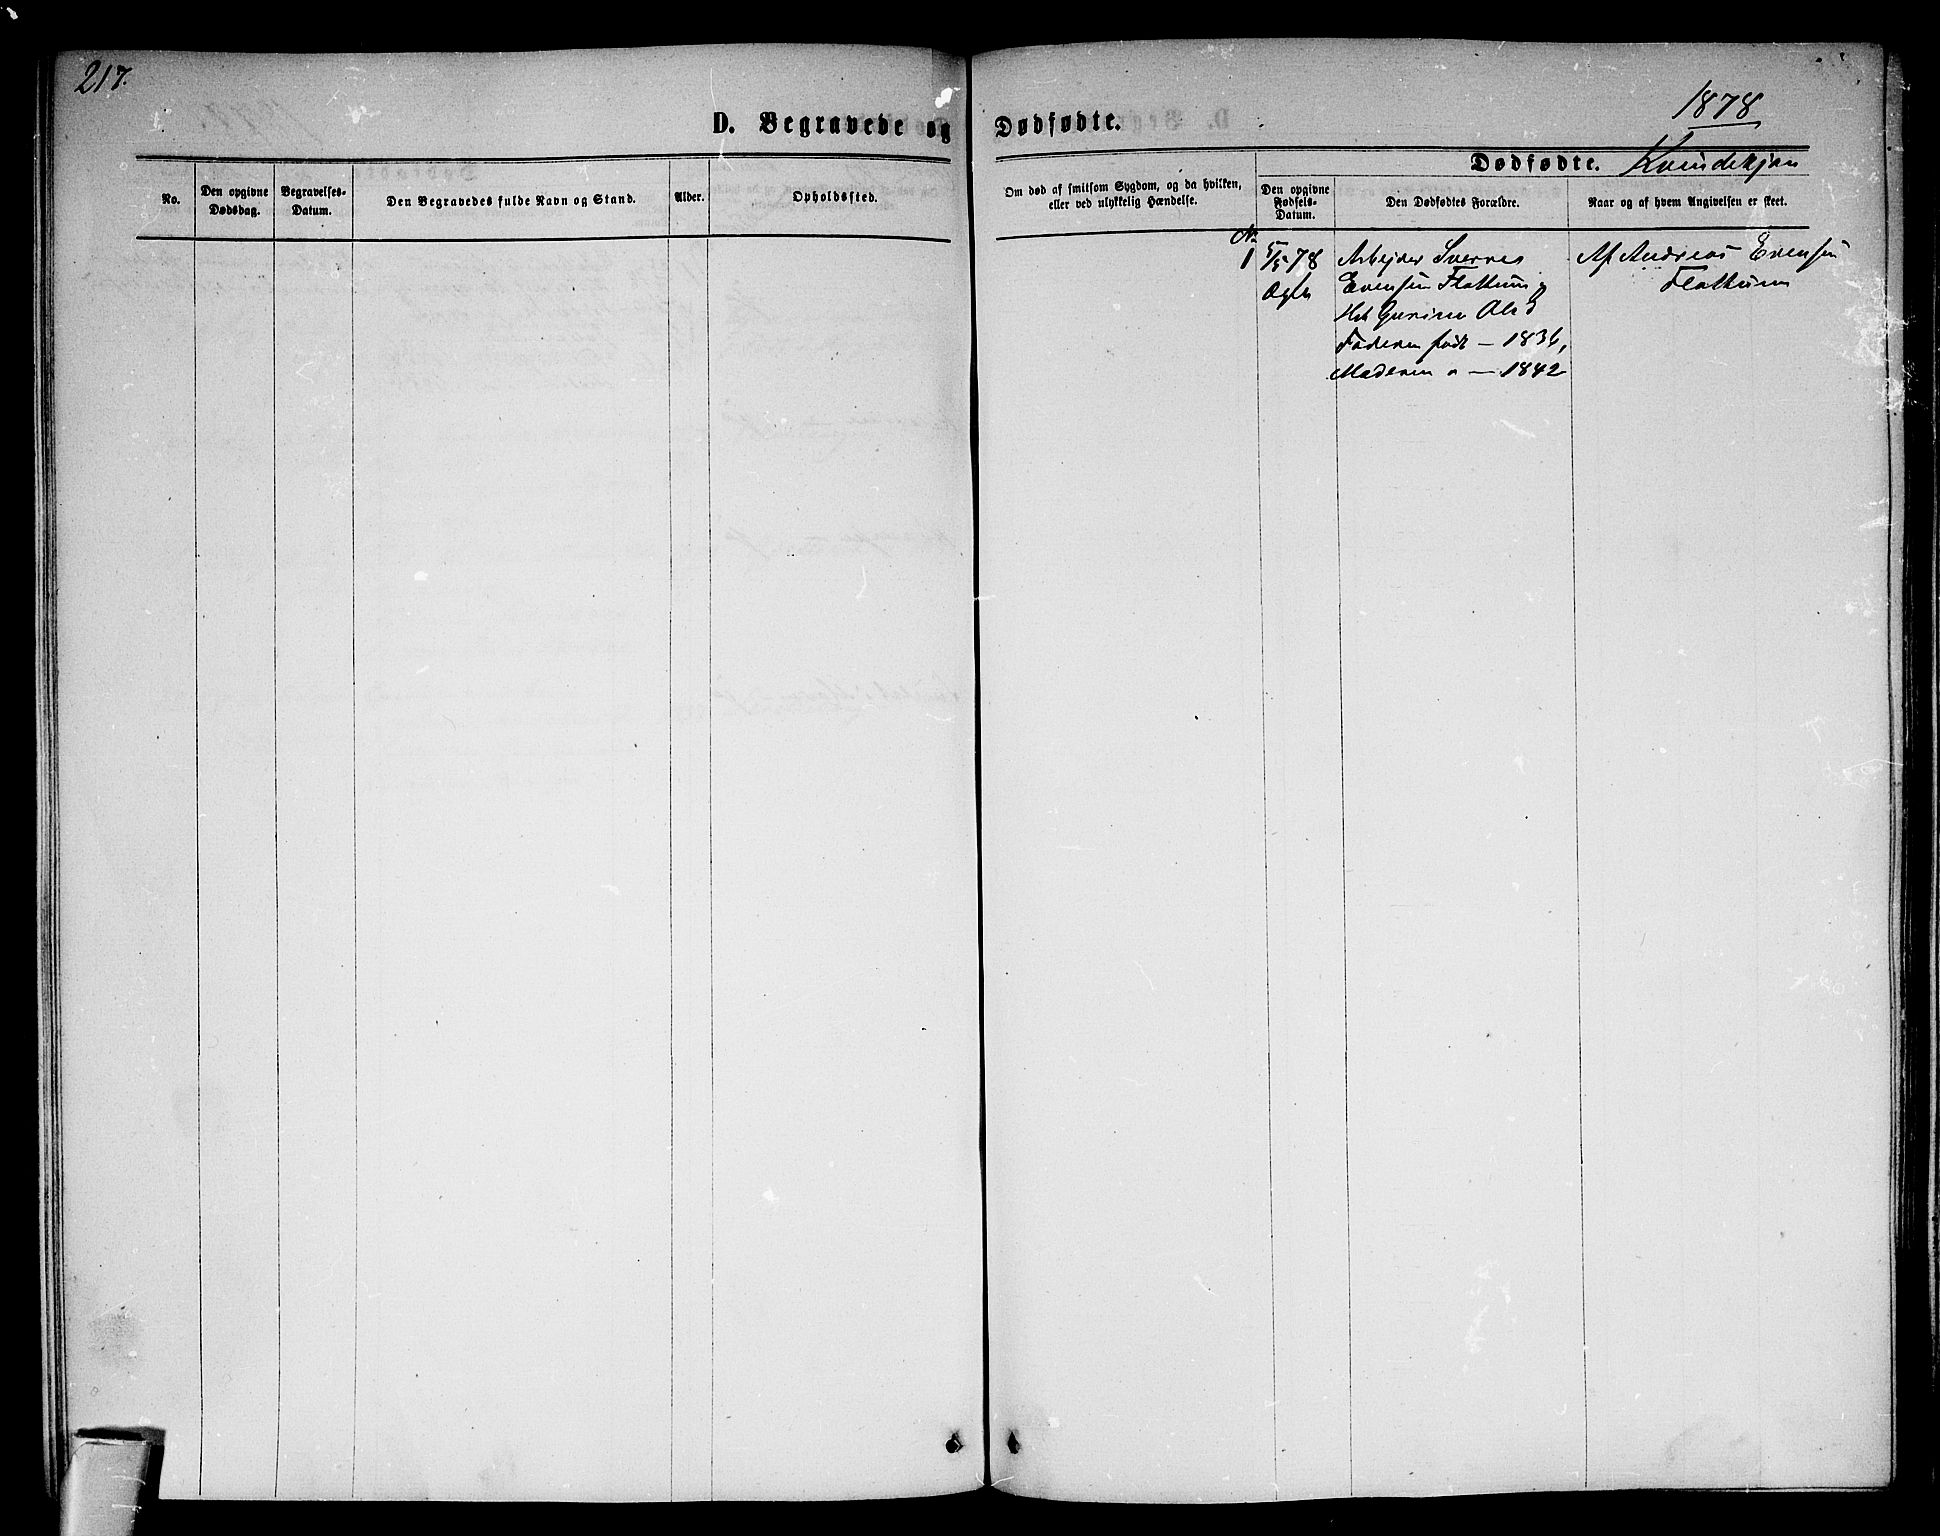 217.
1878
D. Begravede og Dødfødte.
Dødfødte. Kvindekjøn
No.
Den opgivne Dødsdag.
Begravelses-Datum.
Den Begravedes fulde Navn og Stand.
Alder.
Opholdssted.
Om død af smitsom Sygdom, og da hvilken,
eller ved ulykkelig Hændelse.
Den opgivne Fødsels-Datum.
Den Dødfødtes Forældre.
Naar og af hvem Angivelsen er skeet.
No
1 5/5 78 Arbejder Svernes Af Andreas Evensen
Ægte Evensen Flattum og Flattum
Gurine Olsd
Faderen født — 1836,
Moderen " — 1842